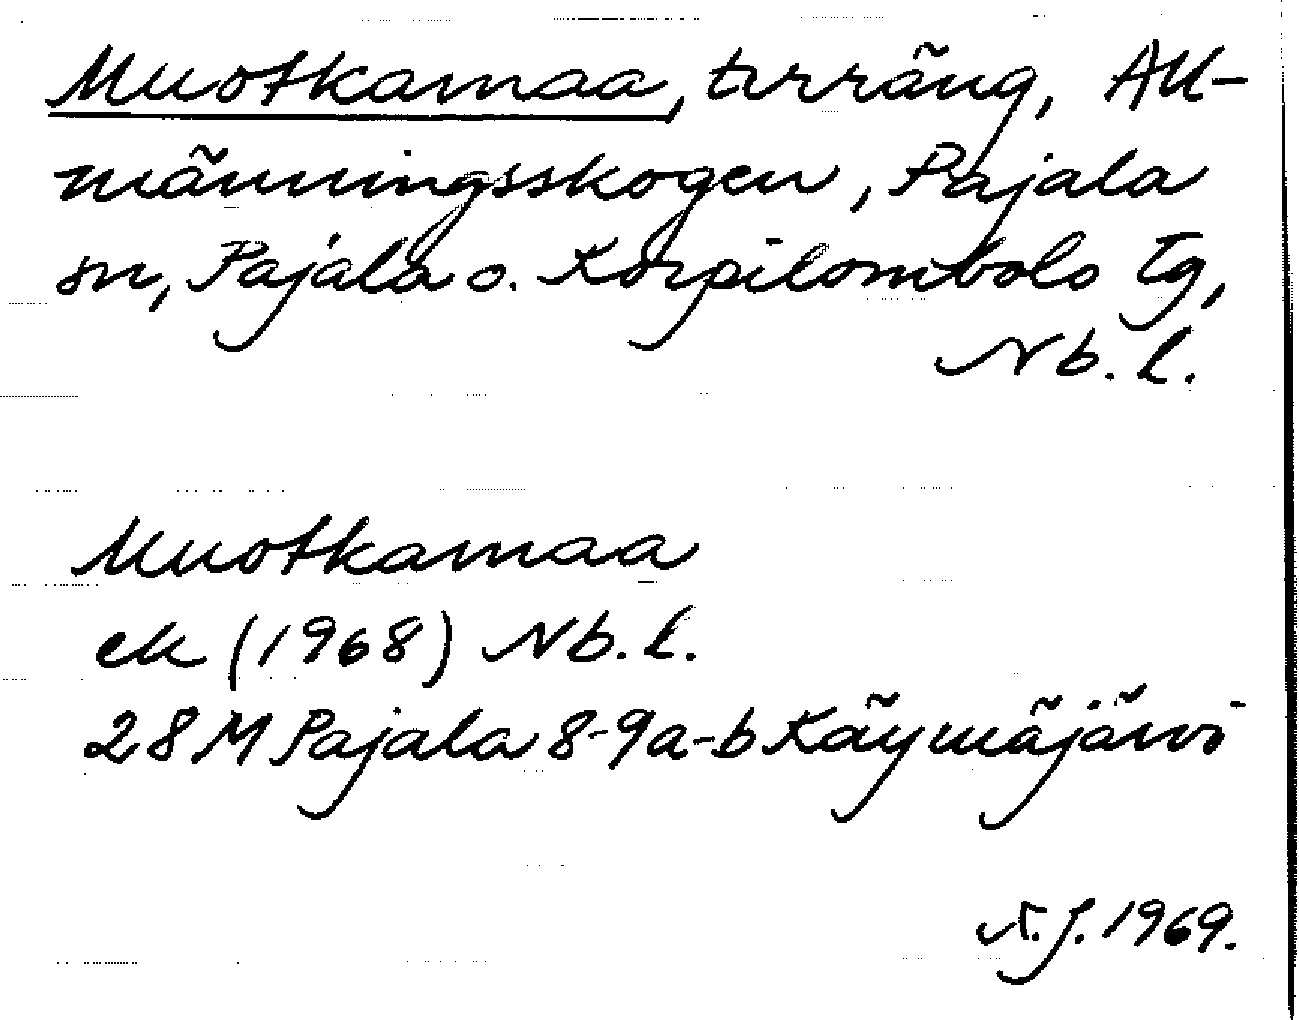 Muotkamaa, terräng, All-
männingsskogen, Pajala
sn, Pajala o. Korpilombolo tg,
Nb. l.
Muotkamaa
ek (1968) Nb. l.
28 M Pajala 8-9a-b Käymäjärvi
N.J. 1969.